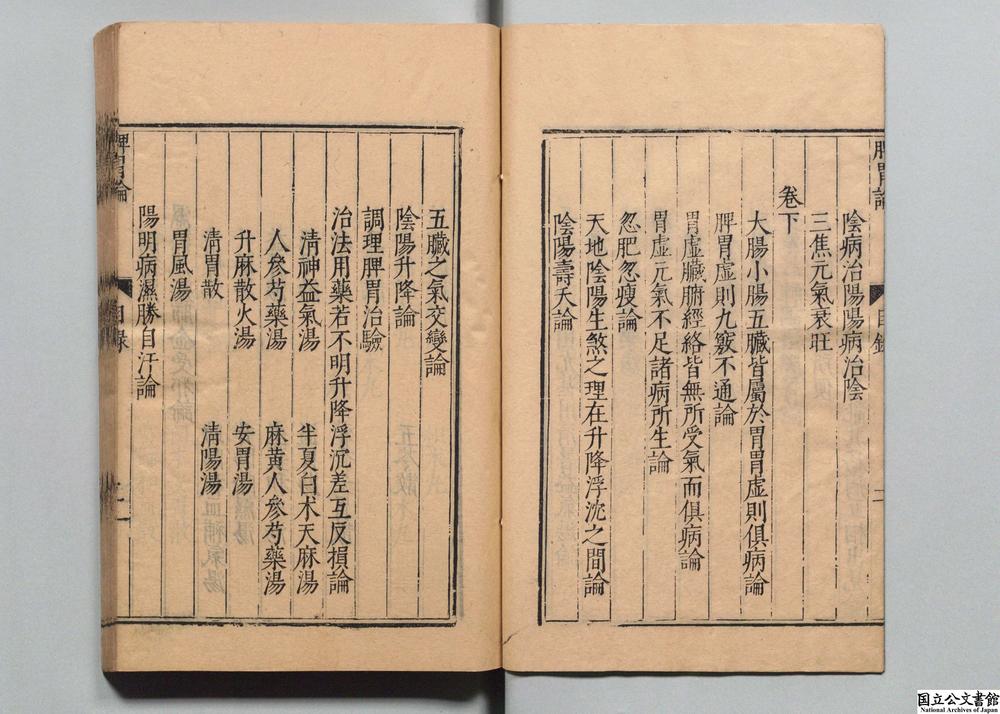 脾胃論
目錄
二
陰病治陽陽病治陰
三焦元氣衰旺
卷下
大腸小腸五臟皆屬於胃胃虛則俱病論
脾胃虛則九竅不通論
胃虛臟腑經絡皆無所受氣而俱病論
胃虛元氣不足諸病所生論
忽肥忽瘦論
天地陰陽生煞之理在升降浮沈之間論
陰陽壽夭論
五臟之氣交變論
陰陽升降論
調理脾胃治驗
治法用藥若不明升降浮沉差互反損論
清神益氣湯 半夏白朮天麻湯
人參芍藥湯 麻黃人參芍藥湯
升麻散火湯 安胃湯
清胃散 清陽湯
胃風湯
陽明病濕勝自汗論
脾胃論
目錄
二
国立公文書館
National Archives of Japan